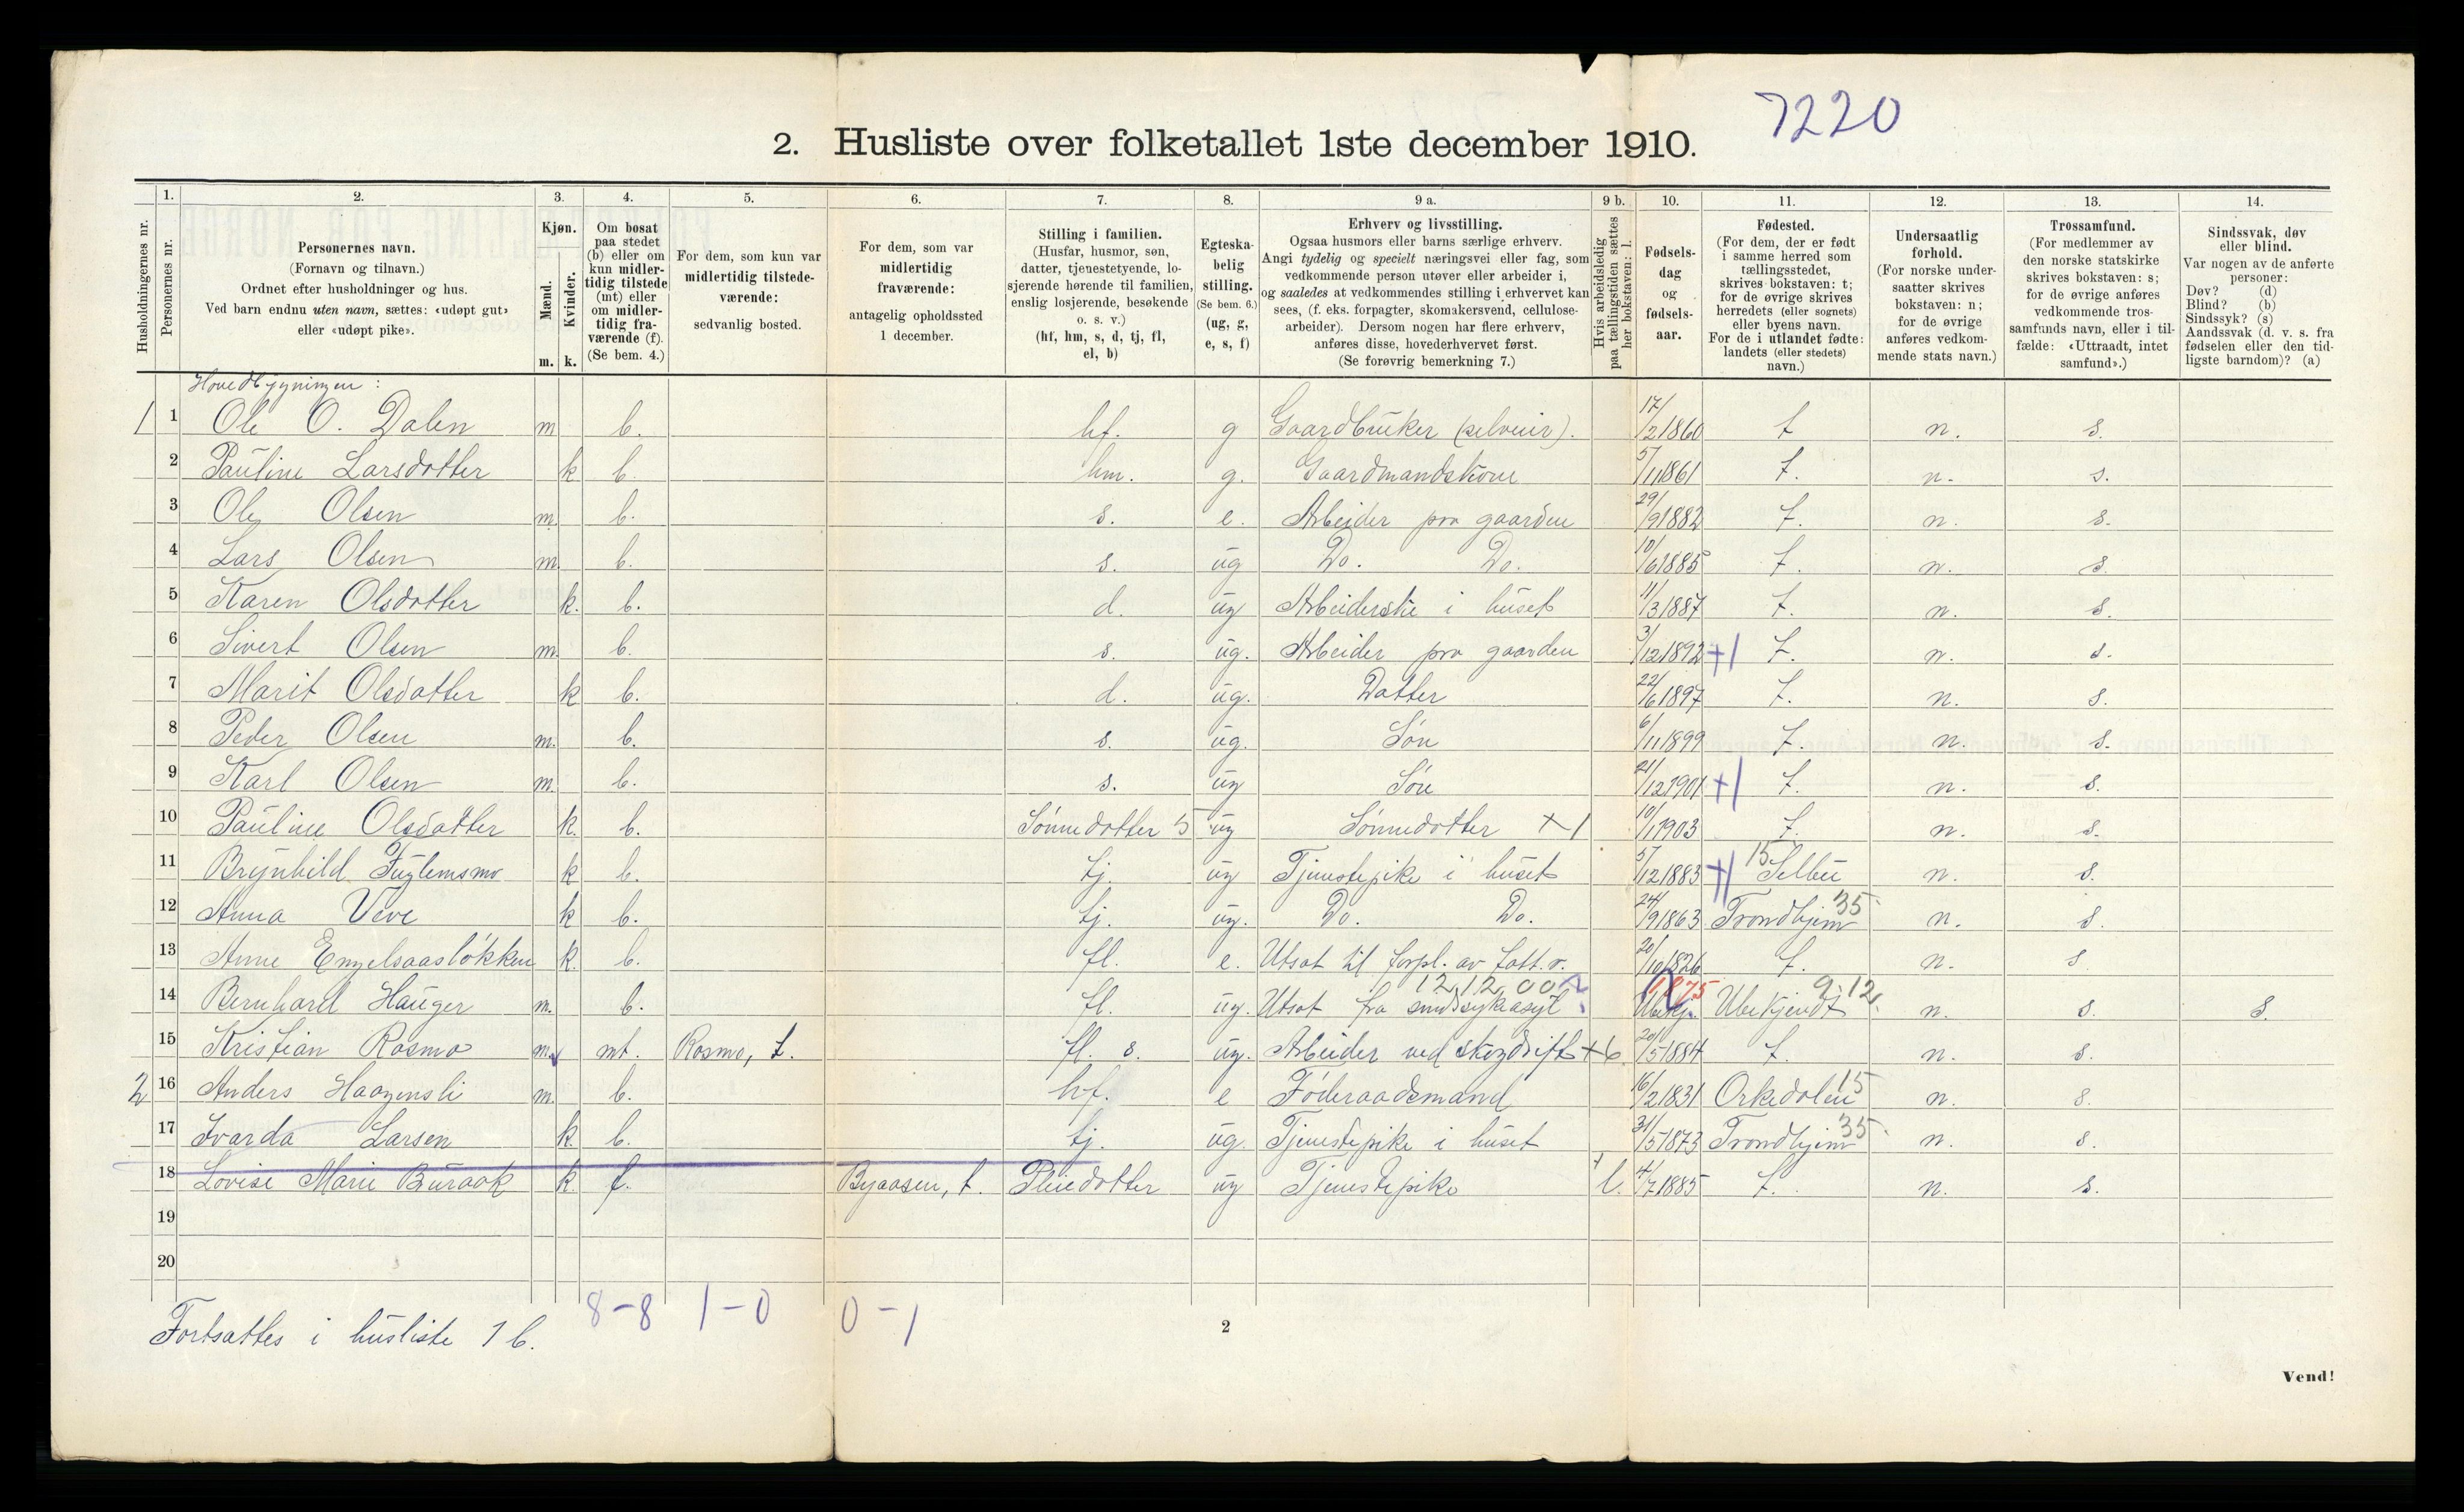 7220
2. Husliste over folketallet 1ste december 1910.
Husholdningernes nr.
1. Personernes nr.
2. Personernes navn. (Fornavn og tilnavn.) Ordnet efter husholdninger og hus. Ved barn endnu uten navn, sættes: «udøpt gut» eller «udøpt pike».
3. Kjøn. Mænd. m. Kvinder. k.
4. Om bosat paa stedet (b) eller om kun midlertidig tilstede (mt) eller om midlertidig fraværende (f). (Se bem. 4.)
5. For dem, som kun var midlertidig tilstedeværende: sedvanlig bosted.
6. For dem, som var midlertidig fraværende: antagelig opholdssted 1 december.
7. Stilling i familien. (Husfar, husmor, søn, datter, tjenestetyende, losjerende hørende til familien, enslig losjerende, besøkende o. s. v.) (hf, hm, s, d, tj, fl, el, b)
8. Egteskabelig stilling. (Se bem. 6.) (ug, g, e, s, f)
9 a. Erhverv og livsstilling. Ogsaa husmors eller barns særlige erhverv. Angi tydelig og specielt næringsvei eller fag, som vedkommende person utøver eller arbeider i, og saaledes at vedkommendes stilling i erhvervet kan sees, (f. eks. forpagter, skomakersvend, cellulose-arbeider). Dersom nogen har flere erhverv, anføres disse, hovederhvervet først. (Se forøvrig bemerkning 7.)
9 b. Hvis arbeidsledig paa tællingstiden sættes her bokstaven: l.
10. Fødselsdag og fødselsaar.
11. Fødested. (For dem, der er født i samme herred som tællingsstedet, skrives bokstaven: t; for de øvrige skrives herredets (eller sognets) eller byens navn. For de i utlandet fødte: landets (eller stedets) navn.)
12. Undersaatlig forhold. (For norske undersaatter skrives bokstaven: n; for de øvrige anføres vedkommende stats navn.)
13. Trossamfund. (For medlemmer av den norske statskirke skrives bokstaven: s; for de øvrige anføres vedkommende trossamfunds navn, eller i tilfælde: «Uttraadt, intet samfund».)
14. Sindssvak, døv eller blind. Var nogen av de anførte personer: Døv? (d) Blind? (b) Sindssyk? (s) Aandssvak (d. v. s. fra fødselen eller den tidligste barndom)? (a)
Hovedbygningen:
1 1 Ole O. Dalen m b. hf. g Gaardbruker (selveier). 17/2 1860 t n. s.
2 Pauline Larsdotter k b. hm. g. Gaardmandskone 5/11 1861 t. n. s.
3 Ole Olsen m. b. s. e. Arbeider paa gaarden 29/9 1882 t. n. s.
4 Lars Olsen m. b. s. ug Do. Do. 10/6 1885 t. n. s.
5 Karen Olsdotter k. b. d. ug Arbeiderske i huset 11/3 1887 t. n. s.
6 Sivert Olsen m. b. s. ug. Arbeider paa gaarden 3/12 1892 +1 t. n. s.
7 Marit Olsdatter k b. d. ug. Datter 22/6 1897 t. n. s.
8 Peder Olsen m. b. s. ug. Søn 6/11 1899 t. n. s.
9 Karl Olsen m. b. s. ug Søn 21/12 1901 +1 t. n. s.
10 Pauline Olsdatter k. b. Sønnedotter 5 ug Sønnedotter +1 10/1 1903 t. n. s.
11 Brynhild Fuglemsmo k b. tj. ug Tjenestepike i huset 5/12 1883 +1 15 Selbu n. s.
12 Anna Veve k b. tj. ug. Do. Do. 24/9 1863 Trondhjem 35 n. s.
13 Anne Engelsaasløkken k. b. fl. e. Utsat til forpl. av fatt.v. 20/10 1826 t. n. s
14 Bernhard Hauger m. b. fl. ug. Utsat fra sindssykeasyl 1875 Ubekj. Ubekjendt 9.12. n. s. s.
15 Kristian Rosmo m. mt. Rosmo, t. fl. s. ug. Arbeider ved skogdrift +6 20/5 1884 t. n. s.
2 16 Anders Haagensli m. b. hf. e Føderaadsmand 16/2 1831 Orkedalen 15 n. s.
17 Ivarda Larsen k. b. tj. ug. Tjenestepike i huset 31/5 1873 Trondhjem 35 n. s.
18 Lovise Marie Buraak k. f. Byaasen, t. Pleiedotter ug Tjenestepike l. 4/7 1885 t. n. s.
19
20
8-8 1-0 0-1
Fortsattes i husliste 1 b.
2
Vend!